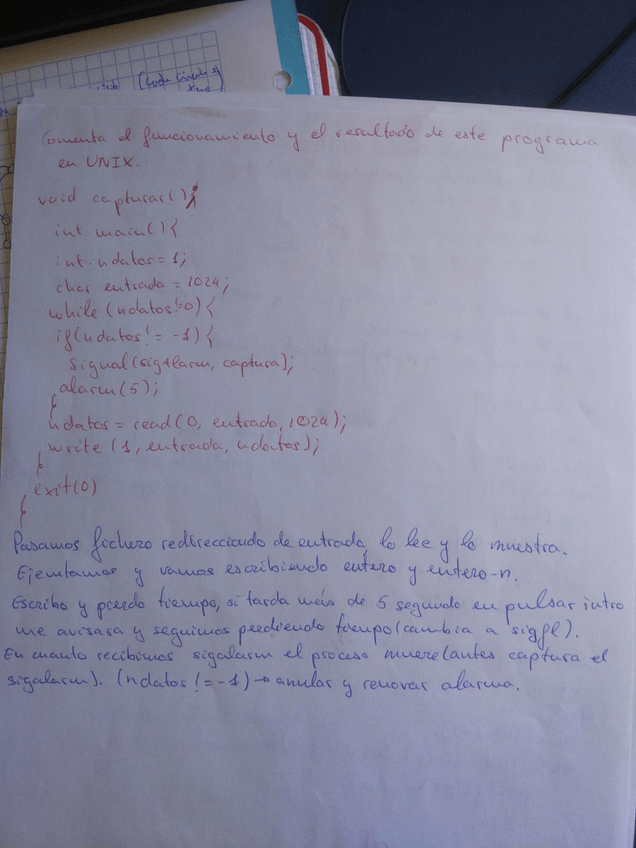 (code
Comenta el funcionamiento y el resultado de este programa
en UNIX.
void capturar();
int main(){
int ndatos=1;
char entrada = 1024;
while (ndatos!=0){
if(ndatos!= -1){
signal(sigalarm, captura);
alarm(5);
}
ndatos = read(0, entrada, 1024);
write (1, entrada, ndatos);
}
exit(0)
}
Pasamos fichero redireccionado de entrada, lo lee y lo muestra.
Ejecutamos y vamos escribiendo entero y entero-n.
Escribo y pierdo tiempo, si tarda más de 5 segundo en pulsar intro
me avisara y seguimos perdiendo tiempo (cambia a sigfl).
En cuanto recibimos sigalarm el proceso muere (antes captura el
sigalarm). (ndatos != -1) → anular y renovar alarma.